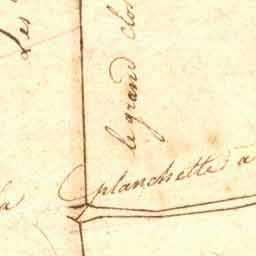 Les
le grand clos
la planchette a